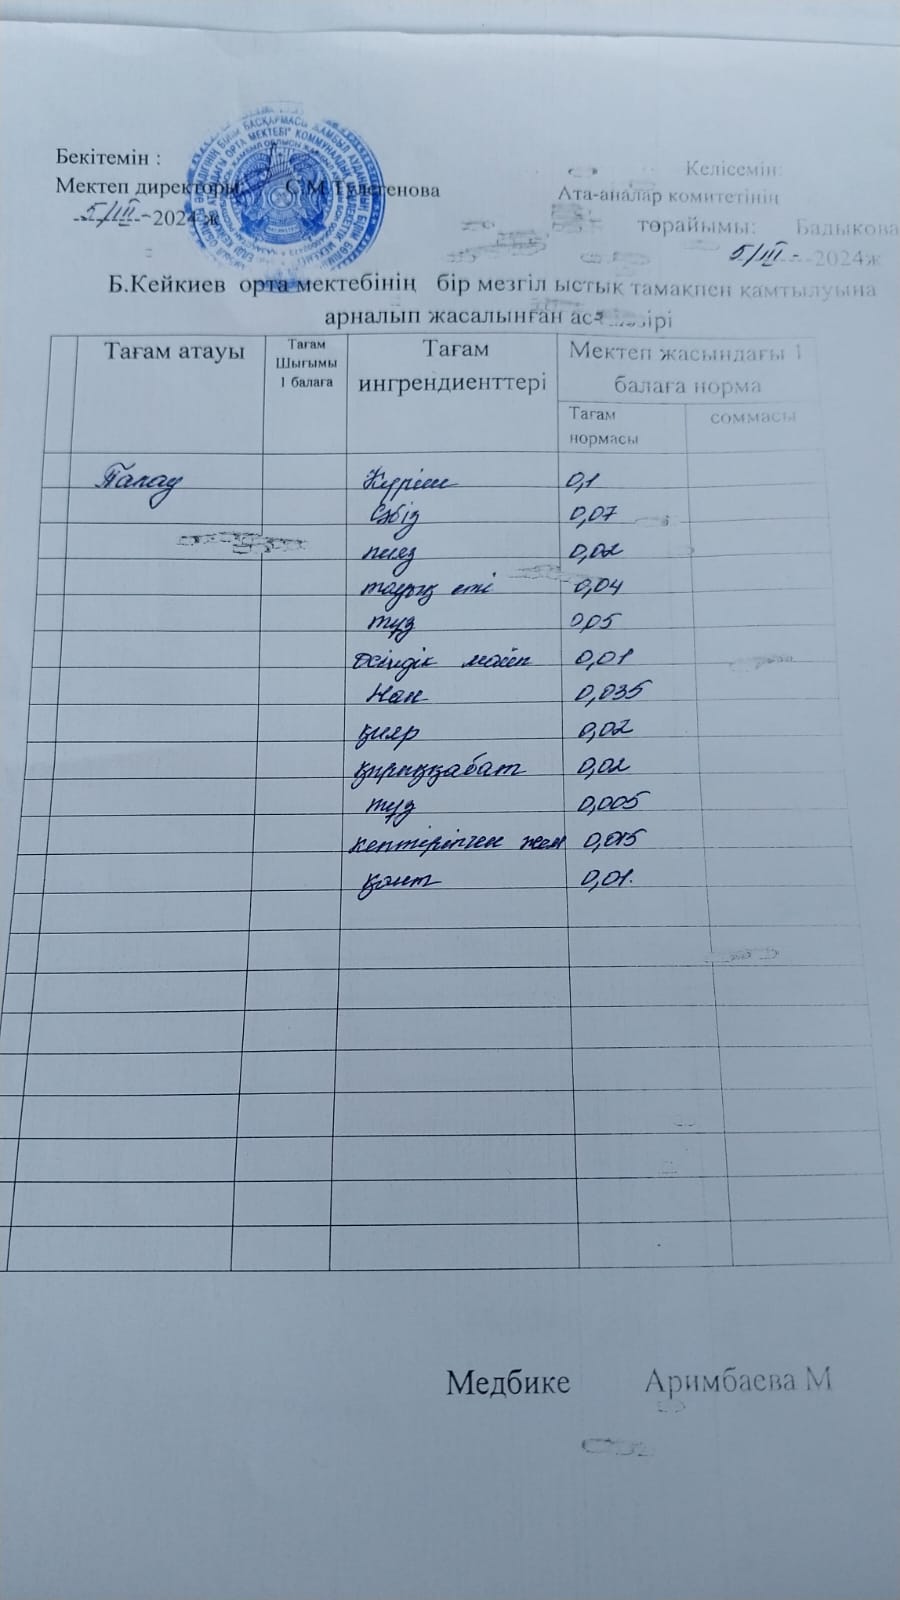 Бекітемін :
Мектеп директоры: С.М Тулегенова
5/III - 2024 ж
Келісемін:
Ата-аналар комитетінің
төрайымы: Бадыкова
5/III - -2024ж
Б.Кейкиев орта мектебінің бір мезгіл ыстық тамақпен қамтылуына
арналып жасалынған ас мәзірі
Тағам атауы
Тағам
Шығымы
1 балаға
Тағам
ингрендиенттері
Мектеп жасындағы 1
балаға норма
Тағам
нормасы
соммасы
Палау Күріш 0,1
Сәбіз 0,07
пияз 0,02
тауық еті 0,04
тұз 0,05
Өсімдік майы 0,01
Нан 0,035
қияр 0,02
қырыққабат 0,02
тұз 0,005
кептірілген жем 0,015
қант 0,01.
Медбике Аримбаева М